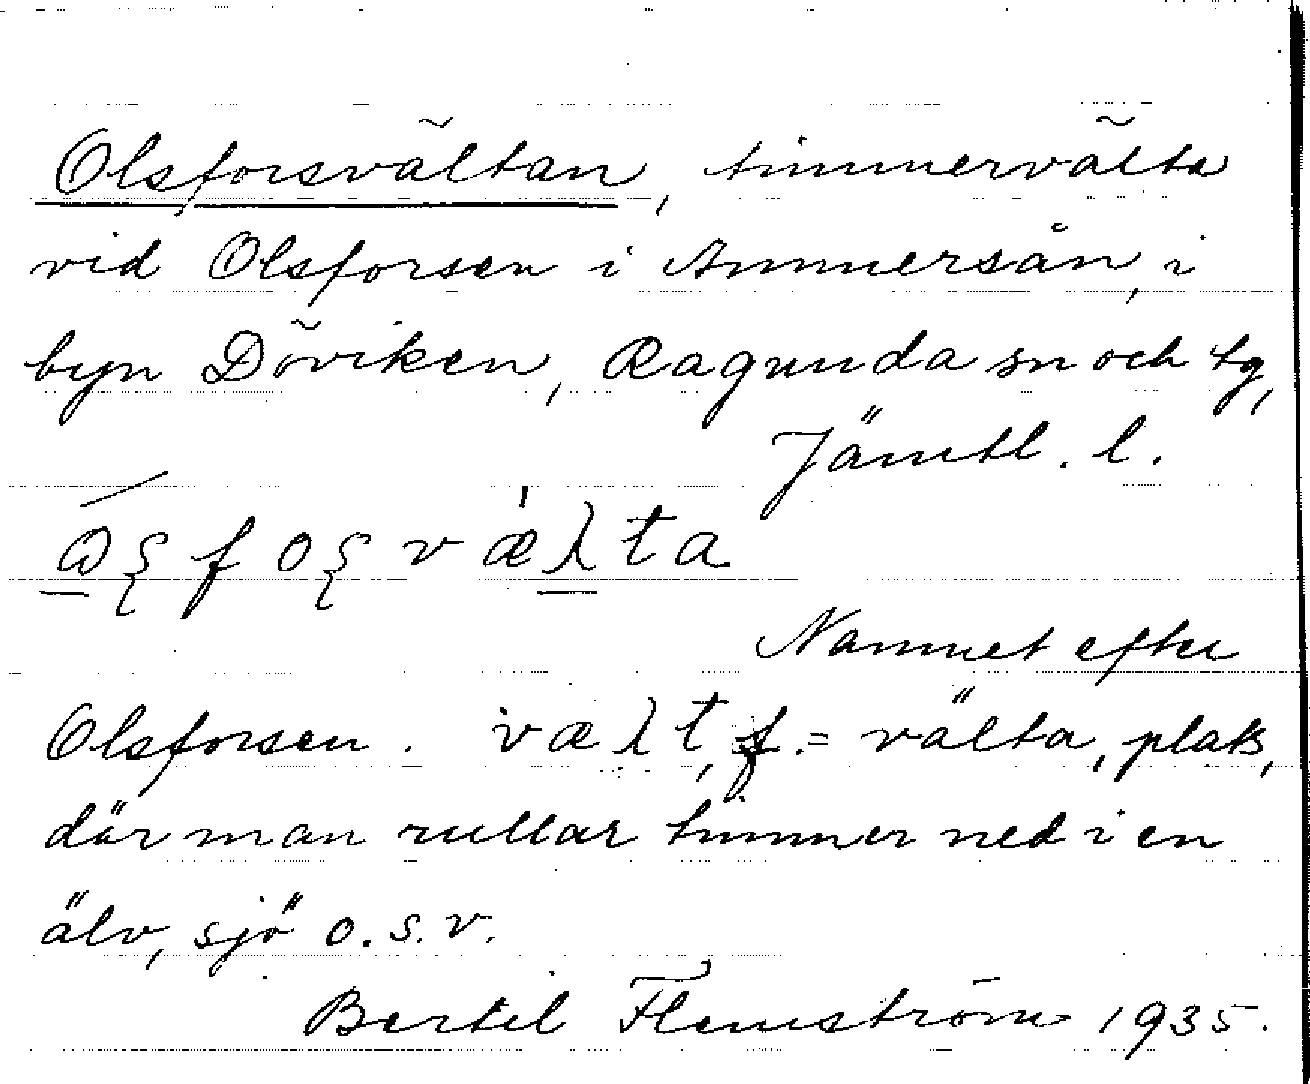 Olsforsvältan, timmervälta
vid Olsforsen i Ammersån, i
byn Döviken, Ragunda sn och tg,
Jämtl. l.
Namnet efter
Olsforsen. f. = välta, plats,
där man rullar timmer ned i en
älv, sjö o.s.v.
Bertil Flemström 1935.